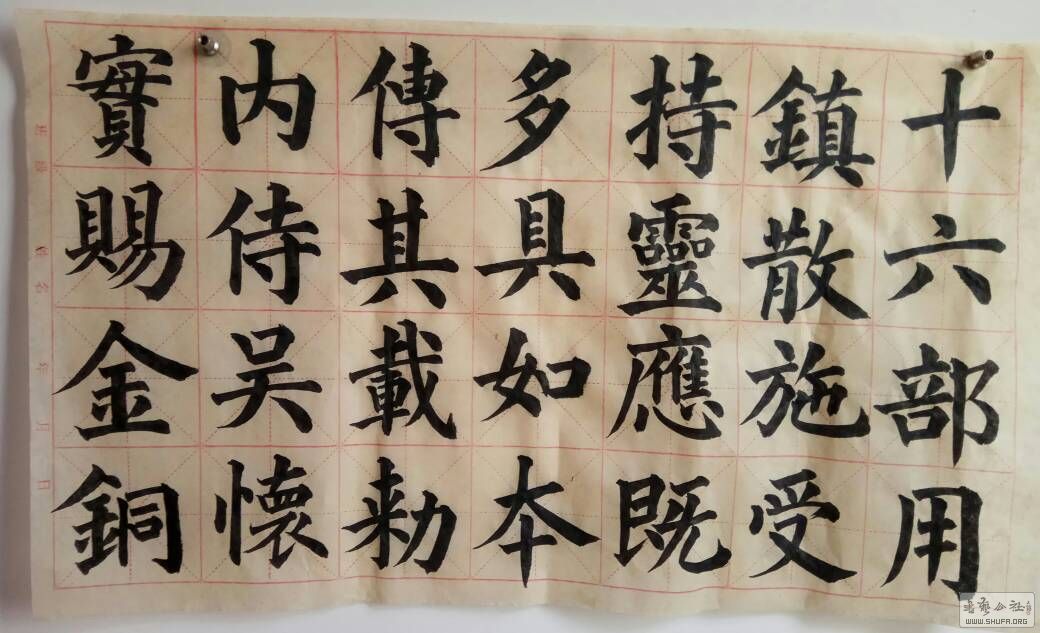 十六部用
鎮散施受
持靈應既
多具如夲
傳其載勑
内侍吴懷
實賜金銅
WWW.SHUFA.ORG